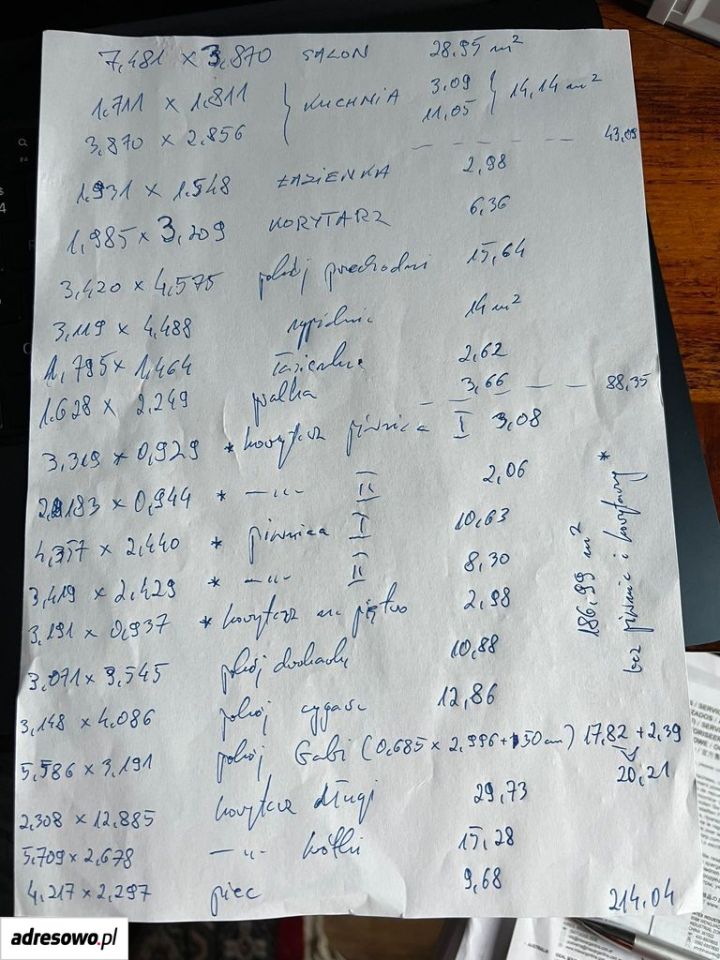 7,481 x 3,870 SALON 28.95 m²
1,711 x 1,811 3.09
KUCHNIA 14,14 m²
3,870 x 2,856 11,05
43,09
1,931 x 1,548 ŁAZIENKA 2,98
1,985 x 3,209 KORYTARZ 6,36
3,420 x 4,575 pokój przechodni 15,64
3,119 x 4,488 sypialnia 14 m²
1,795 x 1,464 łazienka 2,62
1.628 x 2,249 pralka 3,66 88,35
3,319 x 0,929 * korytarz piwnica I 3,08
2,183 x 0,944 * —„— II 2,06
4,357 x 2,440 * piwnica I 10,63
3,419 x 2,429 * —„— II 8,30
3,191 x 0,937 * korytarz na piętro 2,98
3,071 x 3,545 pokój 10,88
3,148 x 4,086 pokój 12,86
5,586 x 3,191 pokój Gabi (0,685 x 2,996 + 50 cm) 17,82 + 2,39
20,21
2,308 x 12,885 korytarz długi 29,73
5,709 x 2,678 —„— krótki 15,28
4,217 x 2,297 piec 9,68
214,04
186,99 m²
bez piwnic i korytarzy *
adresowo.pl